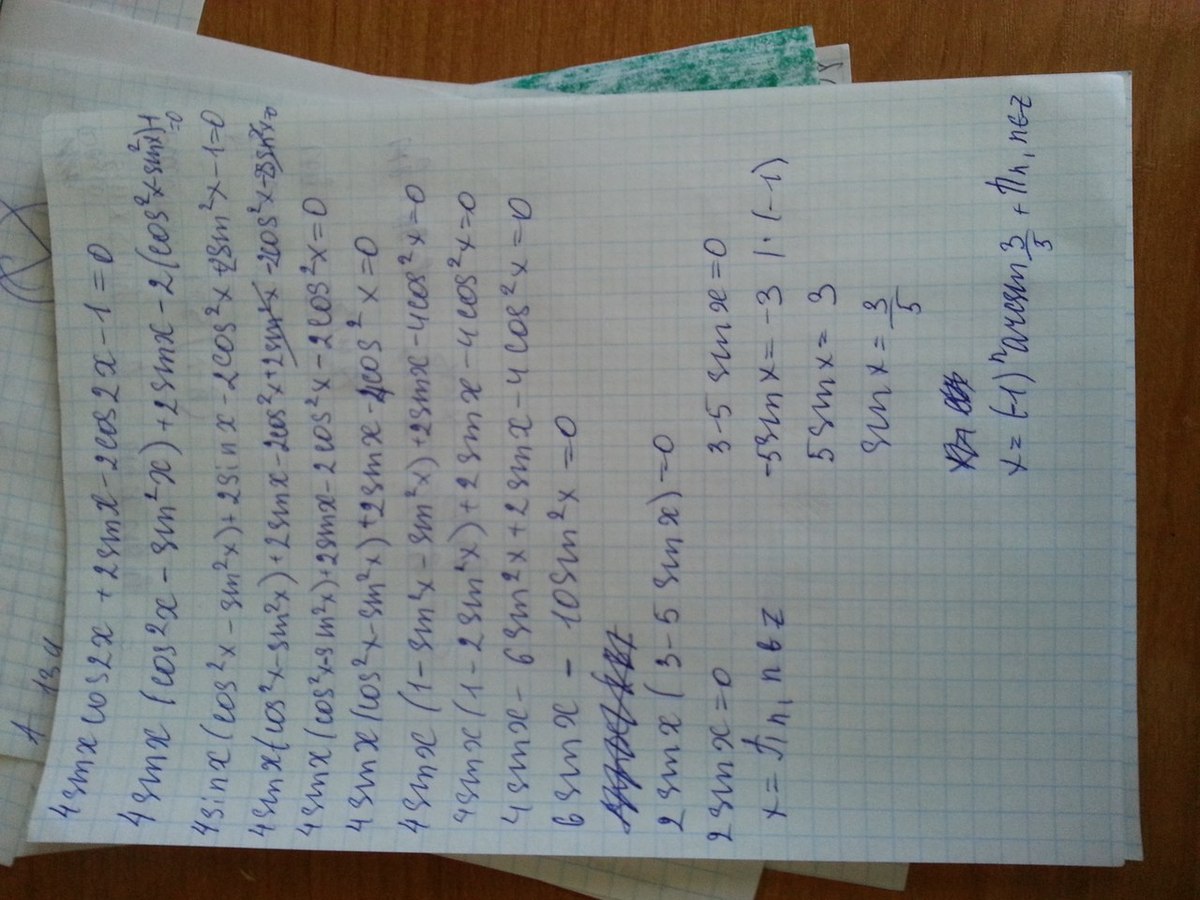 4 sinx cos2x + 2sinx - 2cos2x - 1 = 0
4 sinx (cos2x - sin²x) + 2sinx - 2(cos²x - sin²x)-1
=0
4 sinx (cos²x - sin²x) + 2sinx - 2cos²x + 2sin²x - 1 = 0
4 sinx (cos²x - sin²x) + 2sinx - 2cos²x + 2sin²x - 2cos²x - 2sin²x = 0
4 sinx (cos²x - sin²x) + 2sinx - 2cos²x - 2cos²x = 0
4 sinx (cos²x - sin²x) + 2sinx - 4cos²x = 0
4 sinx (1 - sin²x - sin²x) + 2sinx - 4cos²x = 0
4 sinx (1 - 2sin²x) + 2sinx - 4cos²x = 0
4 sinx - 6 sin²x + 2 sinx - 4 cos²x = 0
6 sinx - 10 sin²x = 0
2 sinx (3 - 5 sinx) = 0
2 sinx = 0
x = πn, n∈z
3 - 5 sinx = 0
-5sinx = -3 | · (-1)
5 sinx = 3
sinx = 3/5
x = (-1)ⁿ arcsin 3/3 + πn, n∈z
A 134